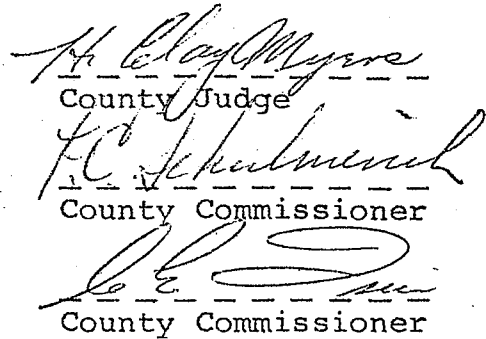 H. Clay Myers
County Judge
F.C.
County Commissioner
C E
County Commissioner